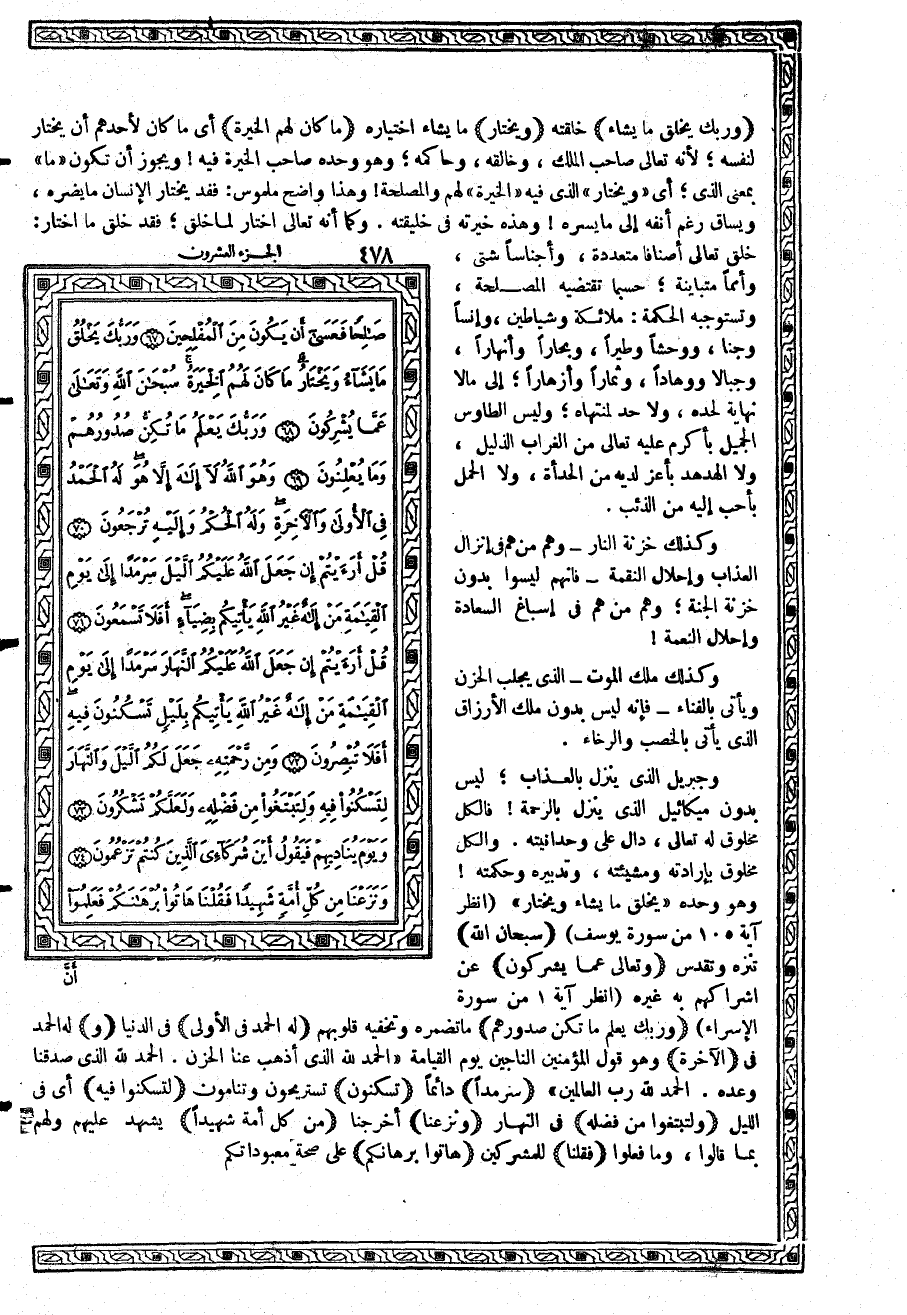 (وربك يخلق ما يشاء) خلقته (ويختار) ما يشاء اختياره (ما كان لهم الخيرة) أى ما كان لأحدهم أن يختار
لنفسه ؛ لأنه تعالى صاحب الملك ، وخالقه ، وحاكمه ؛ وهو وحده صاحب الخيرة فيه ! ويجوز أن تكون «ما»
بمعنى الذى ؛ أى «ويختار» الذى فيه «الخيرة» لهم والمصلحة ! وهذا واضح ملموس : فقد يختار الإنسان مايضره ،
ويساق رغم أنفه إلى مايسره ! وهذه خيرته فى خليقته . وكما أنه تعالى اختار لماخلق ؛ فقد خلق ما اختار :
خلق تعالى أصنافا متعددة ، وأجناساً شتى ،
وأمماً متباينة ؛ حسبما تقتضيه المصلحة ،
وتستوجبه الحكمة : ملائكة وشياطين ، وإنساً
وجنا ، ووحشاً وطيراً ، وبحاراً وأنهاراً ،
وجبالا ووهاداً ، وثماراً وأزهاراً ؛ إلى مالا
نهاية لحده ، ولا حد لمنتهاه ؛ وليس الطاوس
الجميل بأكرم عليه تعالى من الغراب الذليل ،
ولا الهدهد بأعز لديه من الحدأة ، ولا الحمل
بأحب إليه من الذئب .
وكذلك خزنة النار – وهم من هم فى إنزال
العذاب وإحلال النقمة – فانهم ليسوا بدون
خزنة الجنة ؛ وهم من هم فى إسباغ السعادة
وإحلال النعمة !
وكذلك ملك الموت – الذى يجلب الحزن
ويأتى بالفناء – فإنه ليس بدون ملك الأرزاق
الذى يأتى بالخصب والرخاء .
وجبريل الذى ينزل بالعذاب ؛ ليس
بدون ميكائيل الذى ينزل بالرحمة ! فالكل
مخلوق له تعالى ، دال على وحدانيته . والكل
مخلوق بإرادته ومشيئته ، وتدبيره وحكمته !
وهو وحده «يخلق ما يشاء ويختار» (انظر
آية ١٠٥ من سورة يوسف) (سبحان الله)
تنزه وتقدس (وتعالى عما يشركون) عن
اشراكهم به غيره (انظر آية ١ من سورة
الإسراء) (وربك يعلم ما تكن صدورهم) ماتضمره وتخفيه قلوبهم (له الحمد فى الأولى) فى الدنيا (و) له الحمد
فى (الآخرة) وهو قول المؤمنين الناجين يوم القيامة «الحمد لله الذى أذهب عنا الحزن . الحمد لله الذى صدقنا
وعده . الحمد لله رب العالمين» (سرمداً) دائماً (تسكنون) تستريحون وتنامون (لتسكنوا فيه) أى فى
الليل (ولتبتغوا من فضله) فى النهار (ونزعنا) أخرجنا (من كل أمة شهيداً) يشهد عليهم ولهم
بما قالوا ، وما فعلوا (فقلنا) للمشركين (هاتوا برهانكم) على صحة معبوداتكم
٤٧٨ الجزء العشرون
صَٰلِحًا فَعَسَىٰٓ أَن يَكُونَ مِنَ ٱلْمُفْلِحِينَ ٦٧ وَرَبُّكَ يَخْلُقُ
مَا يَشَآءُ وَيَخْتَارُ مَا كَانَ لَهُمُ ٱلْخِيَرَةُ سُبْحَٰنَ ٱللَّهِ وَتَعَٰلَىٰ
عَمَّا يُشْرِكُونَ ٦٨ وَرَبُّكَ يَعْلَمُ مَا تُكِنُّ صُدُورُهُمْ
وَمَا يُعْلِنُونَ ٦٩ وَهُوَ ٱللَّهُ لَآ إِلَٰهَ إِلَّا هُوَ لَهُ ٱلْحَمْدُ
فِى ٱلْأُولَىٰ وَٱلْءَاخِرَةِ وَلَهُ ٱلْحُكْمُ وَإِلَيْهِ تُرْجَعُونَ ٧٠
قُلْ أَرَءَيْتُمْ إِن جَعَلَ ٱللَّهُ عَلَيْكُمُ ٱلَّيْلَ سَرْمَدًا إِلَىٰ يَوْمِ
ٱلْقِيَٰمَةِ مَنْ إِلَٰهٌ غَيْرُ ٱللَّهِ يَأْتِيكُم بِضِيَآءٍ أَفَلَا تَسْمَعُونَ ٧١
قُلْ أَرَءَيْتُمْ إِن جَعَلَ ٱللَّهُ عَلَيْكُمُ ٱلنَّهَارَ سَرْمَدًا إِلَىٰ يَوْمِ
ٱلْقِيَٰمَةِ مَنْ إِلَٰهٌ غَيْرُ ٱللَّهِ يَأْتِيكُم بِلَيْلٍ تَسْكُنُونَ فِيهِ
أَفَلَا تُبْصِرُونَ ٧٢ وَمِن رَّحْمَتِهِۦ جَعَلَ لَكُمُ ٱلَّيْلَ وَٱلنَّهَارَ
لِتَسْكُنُوا۟ فِيهِ وَلِتَبْتَغُوا۟ مِن فَضْلِهِۦ وَلَعَلَّكُمْ تَشْكُرُونَ ٧٣
وَيَوْمَ يُنَادِيهِمْ فَيَقُولُ أَيْنَ شُرَكَآءِىَ ٱلَّذِينَ كُنتُمْ تَزْعُمُونَ ٧٤
وَنَزَعْنَا مِن كُلِّ أُمَّةٍ شَهِيدًا فَقُلْنَا هَاتُوا۟ بُرْهَٰنَكُمْ فَعَلِمُوٓا۟
أَنَّ